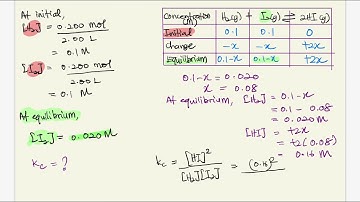 At initial,
[H₂] = 0.200 mol / 2.00 L
= 0.1 M
[I₂] = 0.200 mol / 2.00 L
= 0.1 M
At equilibrium,
[I₂] = 0.020 M
Kc = ?
Concentration (M) H₂(g) + I₂(g) ⇌ 2HI(g)
Initial 0.1 0.1 0
change -x -x +2x
Equilibrium 0.1-x 0.1-x +2x
0.1-x = 0.020
x = 0.08
At equilibrium, [H₂] = 0.1-x
= 0.1 - 0.08
= 0.020 M
[HI] = +2x
= +2(0.08)
= 0.16 M
Kc = [HI]² / [H₂][I₂] = (0.16)²